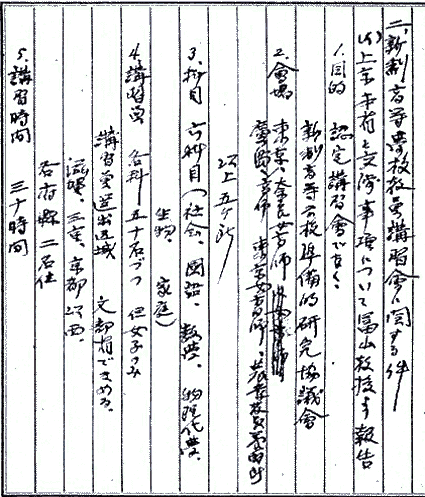 二、新制高等学校教員講習會に関する件
(イ)上京本省と交渉事項について冨山教授より報告
1. 目的 認定講習會でなく、
新制高等学校準備的研究協議會
2. 會場 東京、奈良女高師
東京女高師、
以上五ヶ所
3. 科目 六科目(社会、國語、数学、物理化学、
生物、家庭)
4. 講習員 各科 五十名づつ 但女子のみ
講習員選出区域 文部省できめる。
滋賀、三重、京都以西、
各府縣二名位
5. 講習時間 三十時間